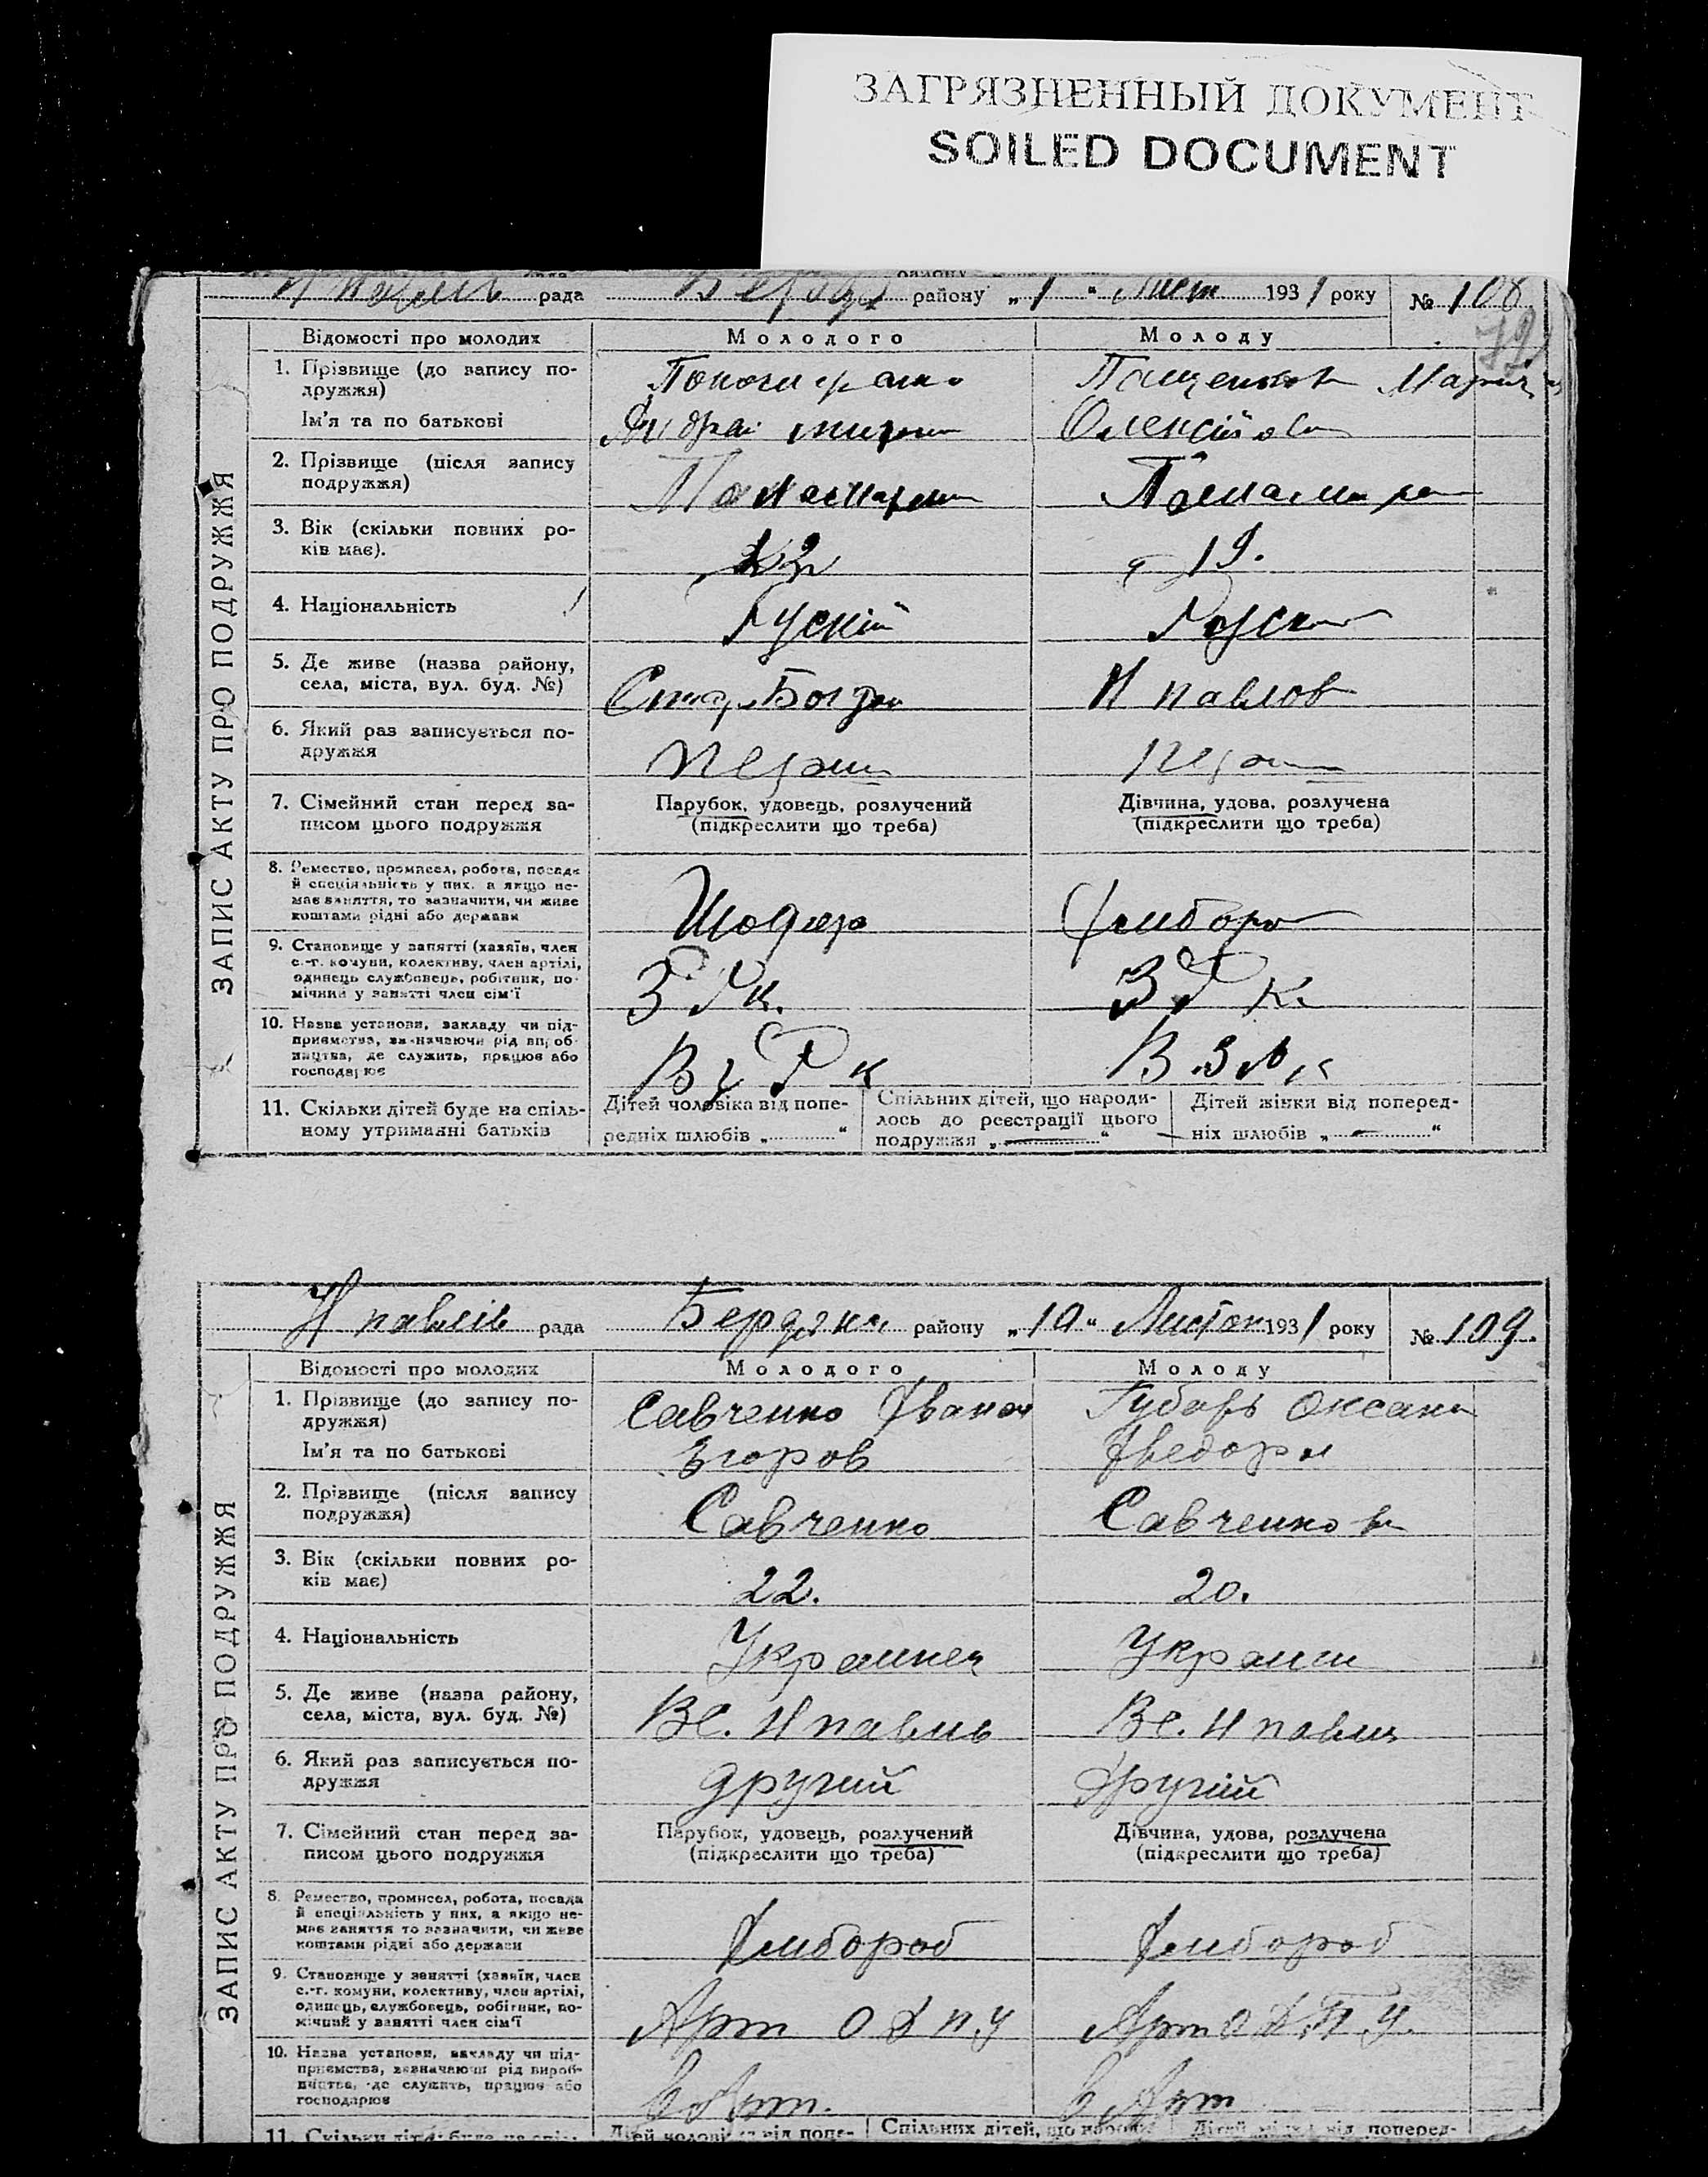 ЗАГРЯЗНЕННЫЙ ДОКУМЕНТ
SOILED DOCUMENT
рада району „1“ Лист 1931 року № 108
79
ЗАПИС АКТУ ПРО ПОДРУЖЖЯ
Відомості про молодих Молодого Молоду
1. Прізвище (до запису по-
дружжя)
Ім'я та по батькові
Олексійов
2. Прізвище (після запису
подружжя)
3. Вік (скільки повних ро-
ків має).
22 19.
4. Національність
Рускій
5. Де живе (назва району,
села, міста, вул. буд. №)
Н павлов
6. Який раз записується по-
дружжя
перши
7. Сімейний стан перед за-
писом цього подружжя
Парубок, удовець, розлучений
(підкреслити що треба)
Дівчина, удова, розлучена
(підкреслити що треба)
8. Ремество, промисел, робота, посада
й спеціяльність у них, а якщо не-
має заняття, то зазначити, чи живе
коштами рідні або держави
Шофер
9. Становище у занятті (хазяїн, член
с.-г. комуни, колективу, член артілі,
одинець службовець, робітник, по-
мічний у занятті член сім'ї
З Р к. З Р к.
10. Назва установи, закладу чи під-
приємства, зазначаючи рід вироб-
ництва, де служить, працює або
господарює
11. Скільки дітей буде на спіль-
ному утриманні батьків
Дітей чоловіка від попе-
редніх шлюбів „ “
Спільних дітей, що народи-
лось до реєстрації цього
подружжя „ “
Дітей жінки від поперед-
ніх шлюбів „ “
Н павлів рада Бердянс району „10“ Листоп 1931 року № 109.
ЗАПИС АКТУ ПРО ПОДРУЖЖЯ
Відомості про молодих Молодого Молоду
1. Прізвище (до запису по-
дружжя)
Савченко Іван Губарь Оксана
Ім'я та по батькові
Егоров Фведори
2. Прізвище (після запису
подружжя)
Савченко Савченкова
3. Вік (скільки повних ро-
ків має)
22. 20.
4. Національність
Украинец Украин
5. Де живе (назва району,
села, міста, вул. буд. №)
Вс. Н павлів Вс. Н павлів
6. Який раз записується по-
дружжя
другий другий
7. Сімейний стан перед за-
писом цього подружжя
Парубок, удовець, розлучений
(підкреслити що треба)
Дівчина, удова, розлучена
(підкреслити що треба)
8. Ремество, промисел, робота, посада
й спеціяльність у них, а якщо не-
має заняття то зазначити, чи живе
коштами рідні або держави
Хлибороб Хлибороб
9. Становище у занятті (хазяїн, член
с.-г. комуни, колективу, член артілі,
одинець, службовець, робітник, по-
мічний у занятті член сім'ї
Арт О Д П У Арт О Д П У.
10. Назва установи, закладу чи під-
приємства, зазначаючи рід вироб-
ництва, де служить, працює або
господарює
в Арт. в Арт
11. Скільки дітей буде на спіль-
Дітей чоловіка від попе-
Спільних дітей, що народи-
Дітей жінки від поперед-